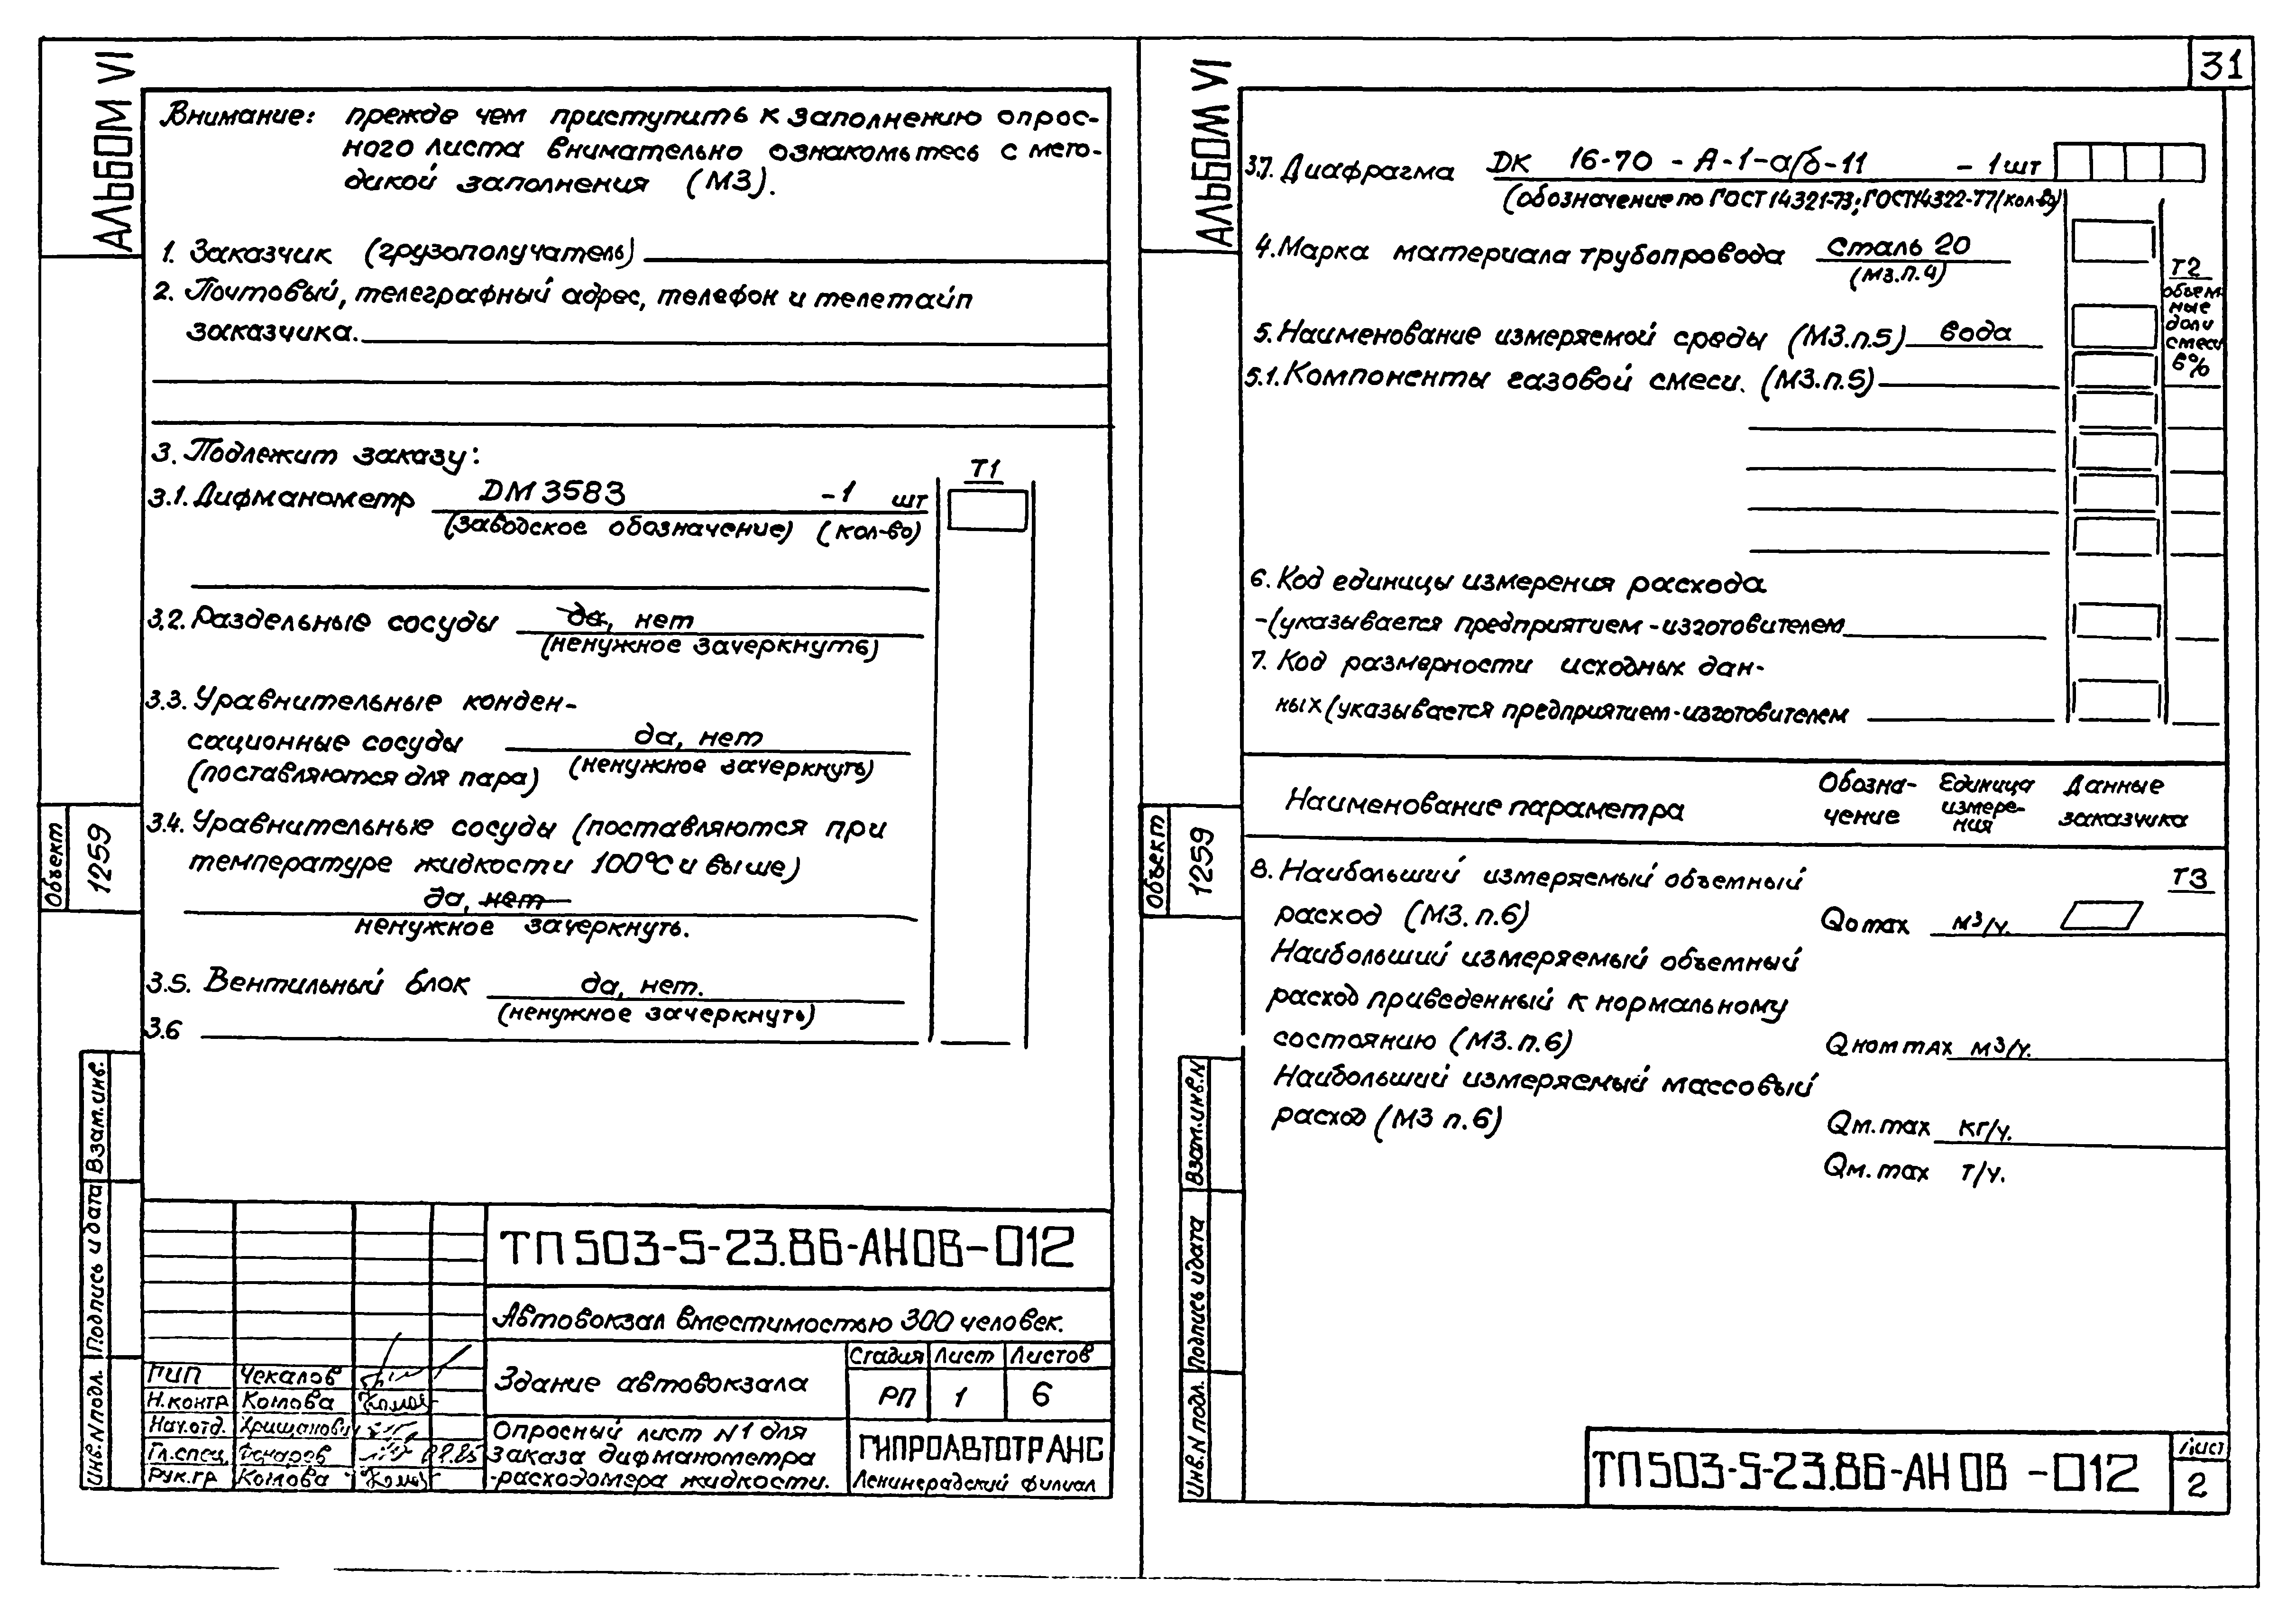 АЛЬБОМ VI
Внимание: прежде чем приступить к заполнению опрос-
ного листа внимательно ознакомьтесь с мето-
дикой заполнения (МЗ).
1. Заказчик (грузополучатель)
2. Почтовый, телеграфный адрес, телефон и телетайп
заказчика.
3. Подлежит заказу:
Т1
3.1. Дифманометр ДМ 3583 -1 шт
(заводское обозначение) (кол-во)
3.2. Раздельные сосуды да, нет
(ненужное зачеркнуть)
3.3. Уравнительные конден-
сационные сосуды да, нет
(поставляются для пара) (ненужное зачеркнуть)
3.4. Уравнительные сосуды (поставляются при
температуре жидкости 100°С и выше)
да, нет
ненужное зачеркнуть.
3.5. Вентильный блок да, нет.
(ненужное зачеркнуть)
3.6
Объект
1259
Взам.инв.
Подпись и дата
Инв.N подл.
ТП 503-5-23.86-АНОВ-012
Автовокзал вместимостью 300 человек.
Здание автовокзала
Стадия Лист Листов
РП 1 6
Опросный лист N1 для
заказа дифманометра
-расходомера жидкости.
ГИПРОАВТОТРАНС
Ленинградский филиал
ГИП Чекалов
Н.контр Котлова
Нач.отд.
Гл.спец.
Рук.гр Котлова
31
АЛЬБОМ VI
3.7. Диафрагма ДК 16-70 - А-1-а/б-11 - 1 шт
(обозначение по ГОСТ 14321-73; ГОСТ14322-77/кол-во)
4. Марка материала трубопровода сталь 20
(МЗ.П.4)
Т2
объем-
ные
доли
смеси
в%
5. Наименование измеряемой среды (МЗ.п.5) вода
5.1. Компоненты газовой смеси. (МЗ.п.5)
6. Код единицы измерения расхода
-(указывается предприятием-изготовителем
7. Код размерности исходных дан-
ных (указывается предприятием-изготовителем
Наименование параметра
Обозна-
чение
Единица
измере-
ния
Данные
заказчика
8. Наибольший измеряемый объемный
Т3
расход (МЗ.п.6) Qо max м³/ч.
Наибольший измеряемый объемный
расход приведенный к нормальному
состоянию (МЗ.п.6) Qном max м³/ч.
Наибольший измеряемый массовый
расход (МЗ п.6) Qм.max кг/ч.
Qм.max т/ч.
Объект
1259
Взам.инв.N
Подпись и дата
Инв.N подл.
ТП 503-5-23.86-АНОВ -012
Лист
2